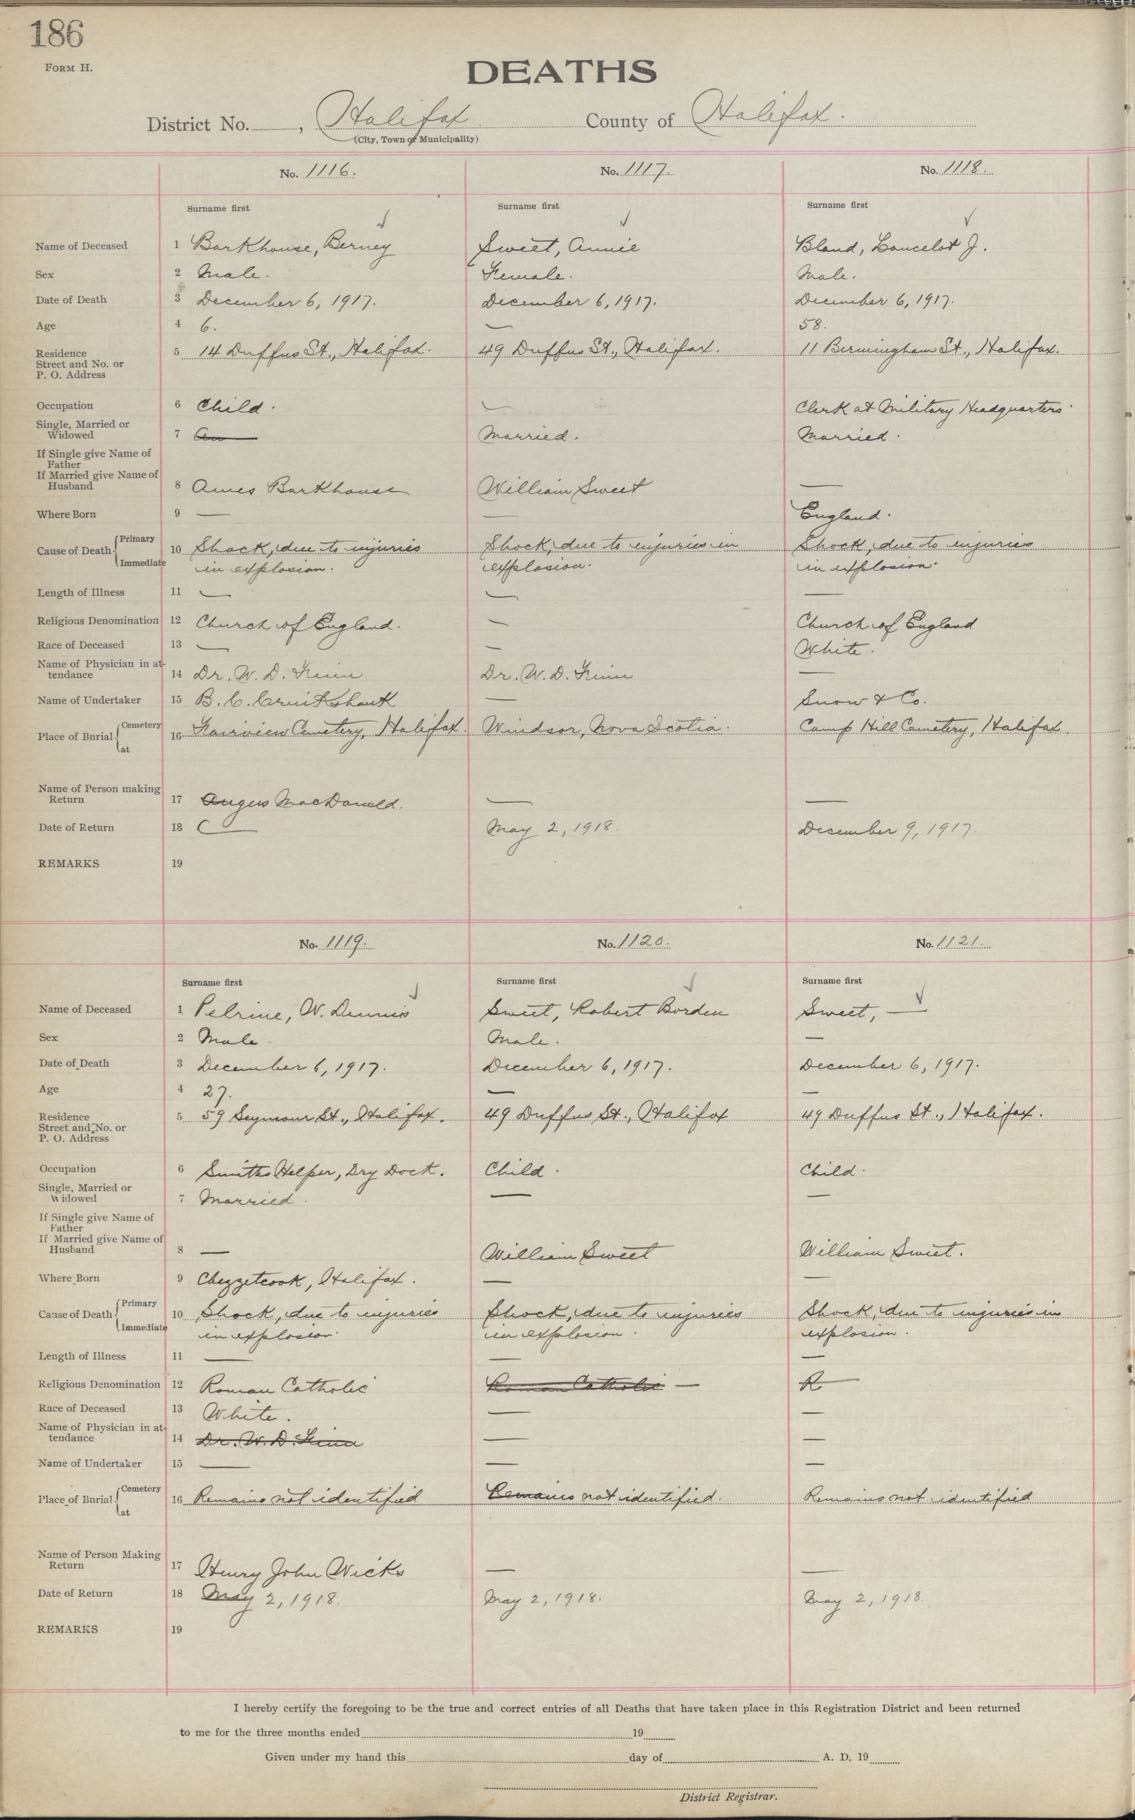 186
FORM H.
DEATHS
District No. , Halifax County of Halifax.
(City, Town or Municipality)
No. 1116. No. 1117. No. 1118.
Surname first Surname first Surname first
Name of Deceased 1 Barkhouse, Berney Sweet, Annie Bland, Lancelot J.
Sex 2 Male. Female. Male.
Date of Death 3 December 6, 1917. December 6, 1917. December 6, 1917.
Age 4 6. — 58.
Residence 5 14 Duffus St., Halifax. 49 Duffus St., Halifax. 11 Birmingham St., Halifax.
Street and No. or
P. O. Address
Occupation 6 Child. — Clerk at Military Headquarters.
Single, Married or
Widowed 7 Married. Married.
If Single give Name of
Father
If Married give Name of
Husband 8 Ames Barkhouse William Sweet —
Where Born 9 — — England.
Cause of Death { Primary
Immediate 10 Shock, due to injuries Shock, due to injuries in Shock, due to injuries
in explosion. explosion. in explosion.
Length of Illness 11 — — —
Religious Denomination 12 Church of England. — Church of England
Race of Deceased 13 — — White.
Name of Physician in at-
tendance 14 Dr. W. D. Finn Dr. W. D. Finn —
Name of Undertaker 15 B. C. Cruikshank — Snow & Co.
Place of Burial { Cemetery
at 16 Fairview Cemetery, Halifax. Windsor, Nova Scotia. Camp Hill Cemetery, Halifax.
Name of Person making
Return 17 Angus MacDonald. — —
Date of Return 18 — May 2, 1918. December 9, 1917.
REMARKS 19
No. 1119. No. 1120. No. 1121.
Surname first Surname first Surname first
Name of Deceased 1 Pelrine, W. Dennis Sweet, Robert Borden Sweet, —
Sex 2 Male. Male. —
Date of Death 3 December 6, 1917. December 6, 1917. December 6, 1917.
Age 4 27. —
Residence 5 59 Seymour St., Halifax. 49 Duffus St., Halifax 49 Duffus St., Halifax.
Street and No. or
P. O. Address
Occupation 6 Smiths Helper, Dry Dock. Child. Child.
Single, Married or
Widowed 7 Married. — —
If Single give Name of
Father
If Married give Name of
Husband 8 — William Sweet William Sweet.
Where Born 9 Chezzetcook, Halifax. — —
Cause of Death { Primary
Immediate 10 Shock, due to injuries Shock, due to injuries Shock, due to injuries in
in explosion. in explosion. explosion.
Length of Illness 11 — — —
Religious Denomination 12 Roman Catholic Roman Catholic — R
Race of Deceased 13 White. — —
Name of Physician in at-
tendance 14 Dr. W. D. Finn — —
Name of Undertaker 15 — — —
Place of Burial { Cemetery
at 16 Remains not identified Remains not identified. Remains not identified
Name of Person Making
Return 17 Henry John Wicks — —
Date of Return 18 May 2, 1918. May 2, 1918. May 2, 1918.
REMARKS 19
I hereby certify the foregoing to be the true and correct entries of all Deaths that have taken place in this Registration District and been returned
to me for the three months ended 19
Given under my hand this day of A. D. 19
District Registrar.